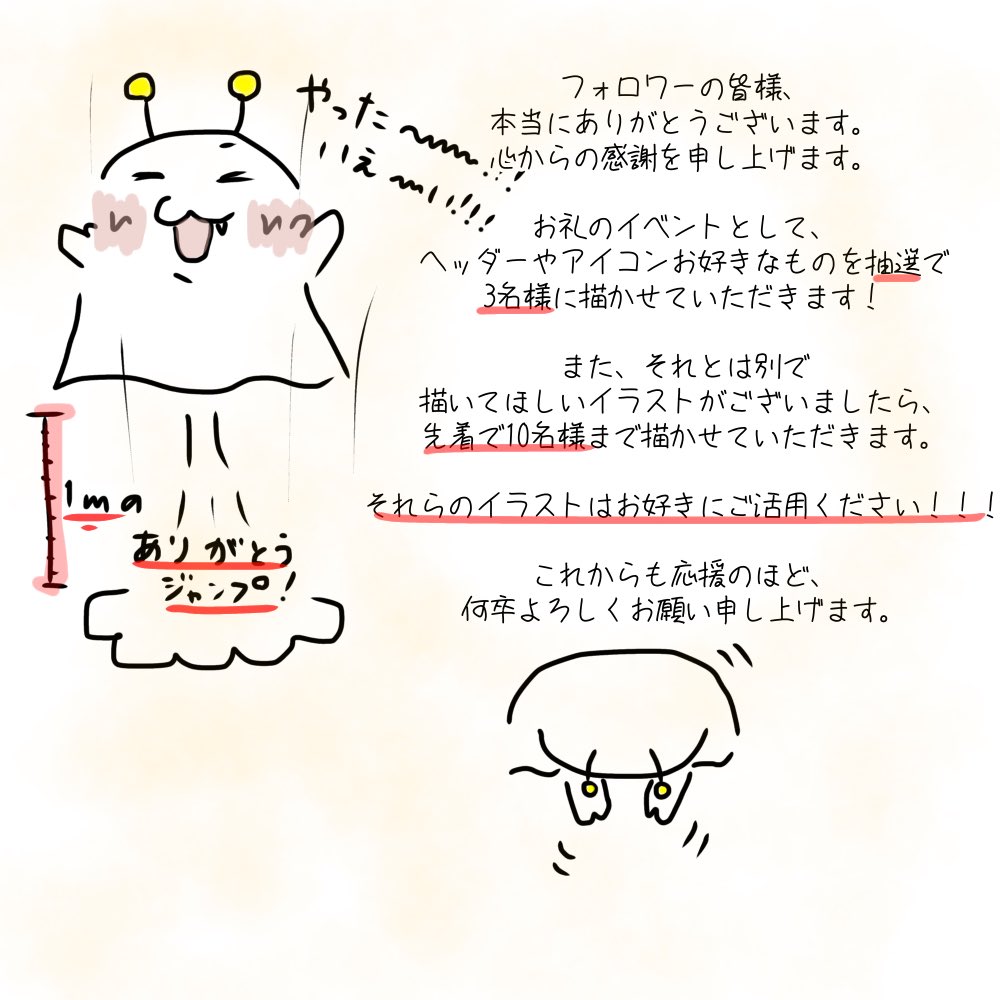 やった〜〜〜!!
いえ〜い!!!
フォロワーの皆様、
本当にありがとうございます。
心からの感謝を申し上げます。
お礼のイベントとして、
ヘッダーやアイコンお好きなものを抽選で
3名様に描かせていただきます！
また、それとは別で
描いてほしいイラストがございましたら、
先着で10名様まで描かせていただきます。
それらのイラストはお好きにご活用ください！！！
これからも応援のほど、
何卒よろしくお願い申し上げます。
1mの
ありがとう
ジャンプ！